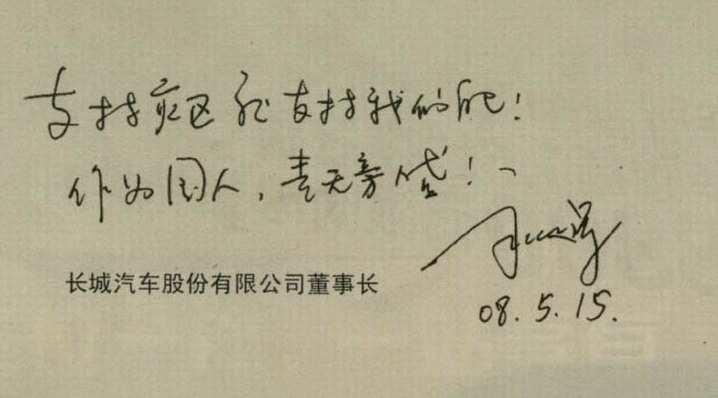 支持灾区就支持我的肥!
作为国人,责无旁贷!
长城汽车股份有限公司董事长
08.5.15.